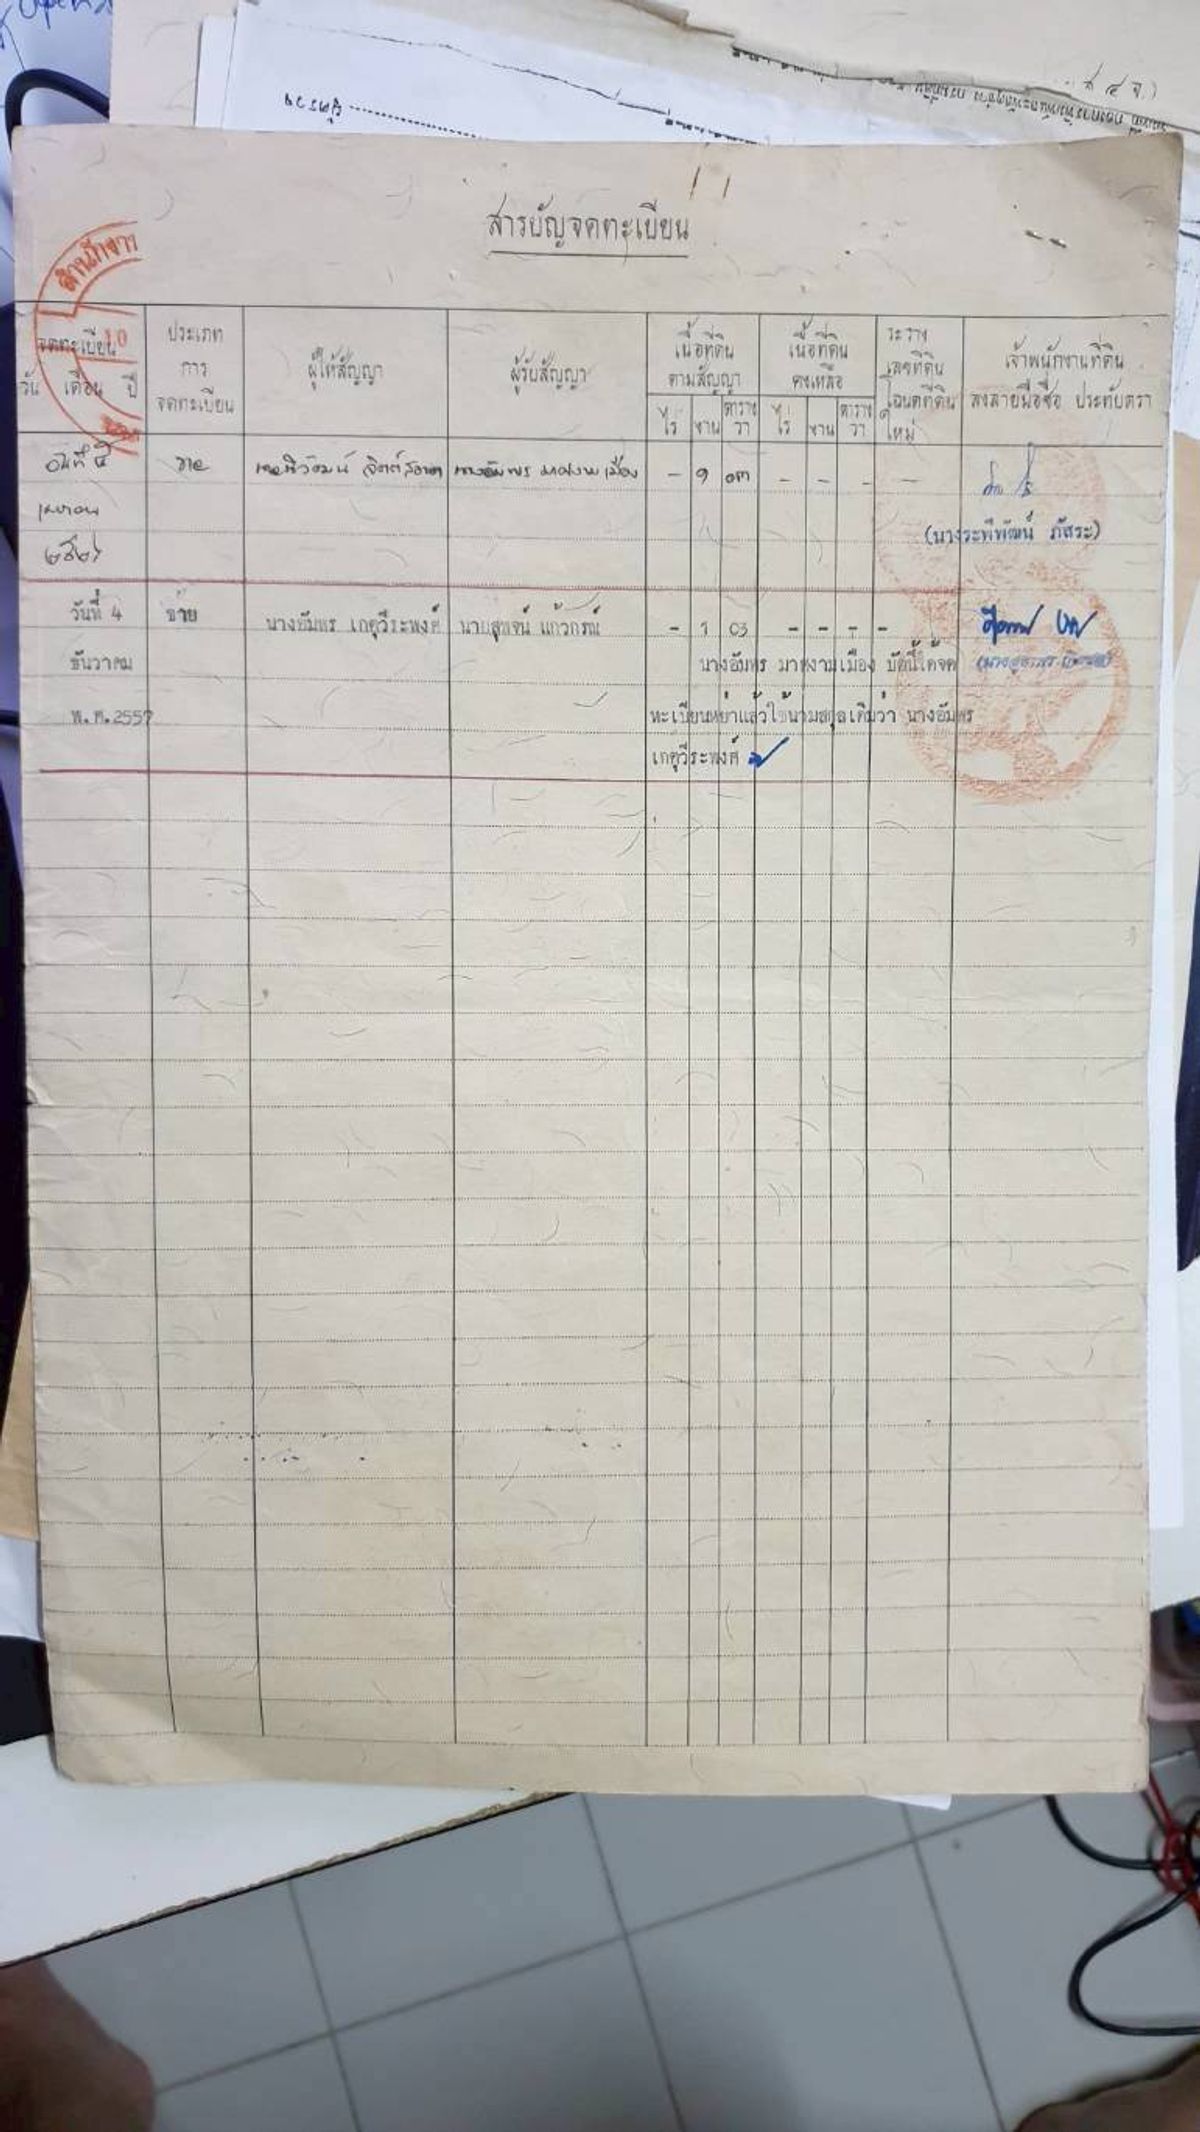 สารบัญจดทะเบียน
จดทะเบียน
วัน เดือน ปี
ประเภท
การ
จดทะเบียน
ผู้ให้สัญญา
ผู้รับสัญญา
เนื้อที่ดิน
ตามสัญญา
ไร่ งาน ตารางวา
เนื้อที่ดิน
คงเหลือ
ไร่ งาน ตารางวา
ระวาง
เลขที่ดิน
โฉนดที่ดิน
ใหม่
เจ้าพนักงานที่ดิน
ลงลายมือชื่อ ประทับตรา
สำนักงาน
วันที่ ๕ ขาย นางอัมพร มาตงามเมือง - ๑ ๐๓ - - - -
เมษายน
(นางระพีพัฒน์ ภัสระ)
วันที่ 4 ขาย นางอัมพร เกตุวีระพงศ์ นายสุพจน์ แก้วกรณ์ - 1 03 - - - -
ธันวาคม นางอัมพร มาตงามเมือง บัดนี้ได้จด
พ.ศ.2557 ทะเบียนหย่าแล้วใช้นามสกุลเดิมว่า นางอัมพร
เกตุวีระพงศ์